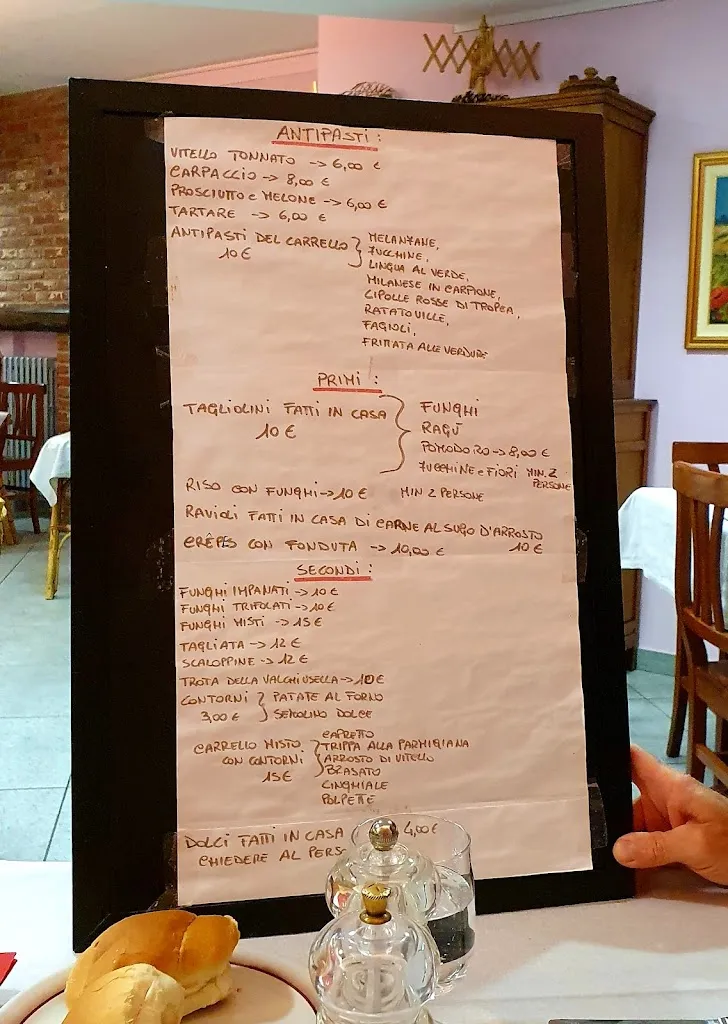 ANTIPASTI:
VITELLO TONNATO -> 6,00 €
CARPACCIO -> 8,00 €
PROSCIUTTO e MELONE -> 6,00 €
TARTARE -> 6,00 €
ANTIPASTI DEL CARRELLO
10 €
MELANZANE,
ZUCCHINE,
LINGUA AL VERDE,
MILANESE IN CARPIONE,
CIPOLLE ROSSE DI TROPEA,
RATATOUILLE,
FAGIOLI,
FRITTATA ALLE VERDURE
PRIMI:
TAGLIOLINI FATTI IN CASA
10 €
FUNGHI
RAGÙ
POMODORO -> 8,00 €
ZUCCHINE e FIORI MIN. 2
PERSONE
RISO CON FUNGHI -> 10 € MIN 2 PERSONE
RAVIOLI FATTI IN CASA DI CARNE AL SUGO D'ARROSTO
10 €
CRÊPES CON FONDUTA -> 10,00 €
SECONDI:
FUNGHI IMPANATI -> 10 €
FUNGHI TRIFOLATI -> 10 €
FUNGHI MISTI -> 15 €
TAGLIATA -> 12 €
SCALOPPINE -> 12 €
TROTA DELLA VALCHIUSELLA -> 10 €
CONTORNI
3,00 €
PATATE AL FORNO
SEMOLINO DOLCE
CARRELLO MISTO
CON CONTORNI
15 €
CAPRETTO
TRIPPA ALLA PARMIGIANA
ARROSTO DI VITELLO
BRASATO
CINGHIALE
POLPETTE
DOLCI FATTI IN CASA 4,00 €
CHIEDERE AL PERSO